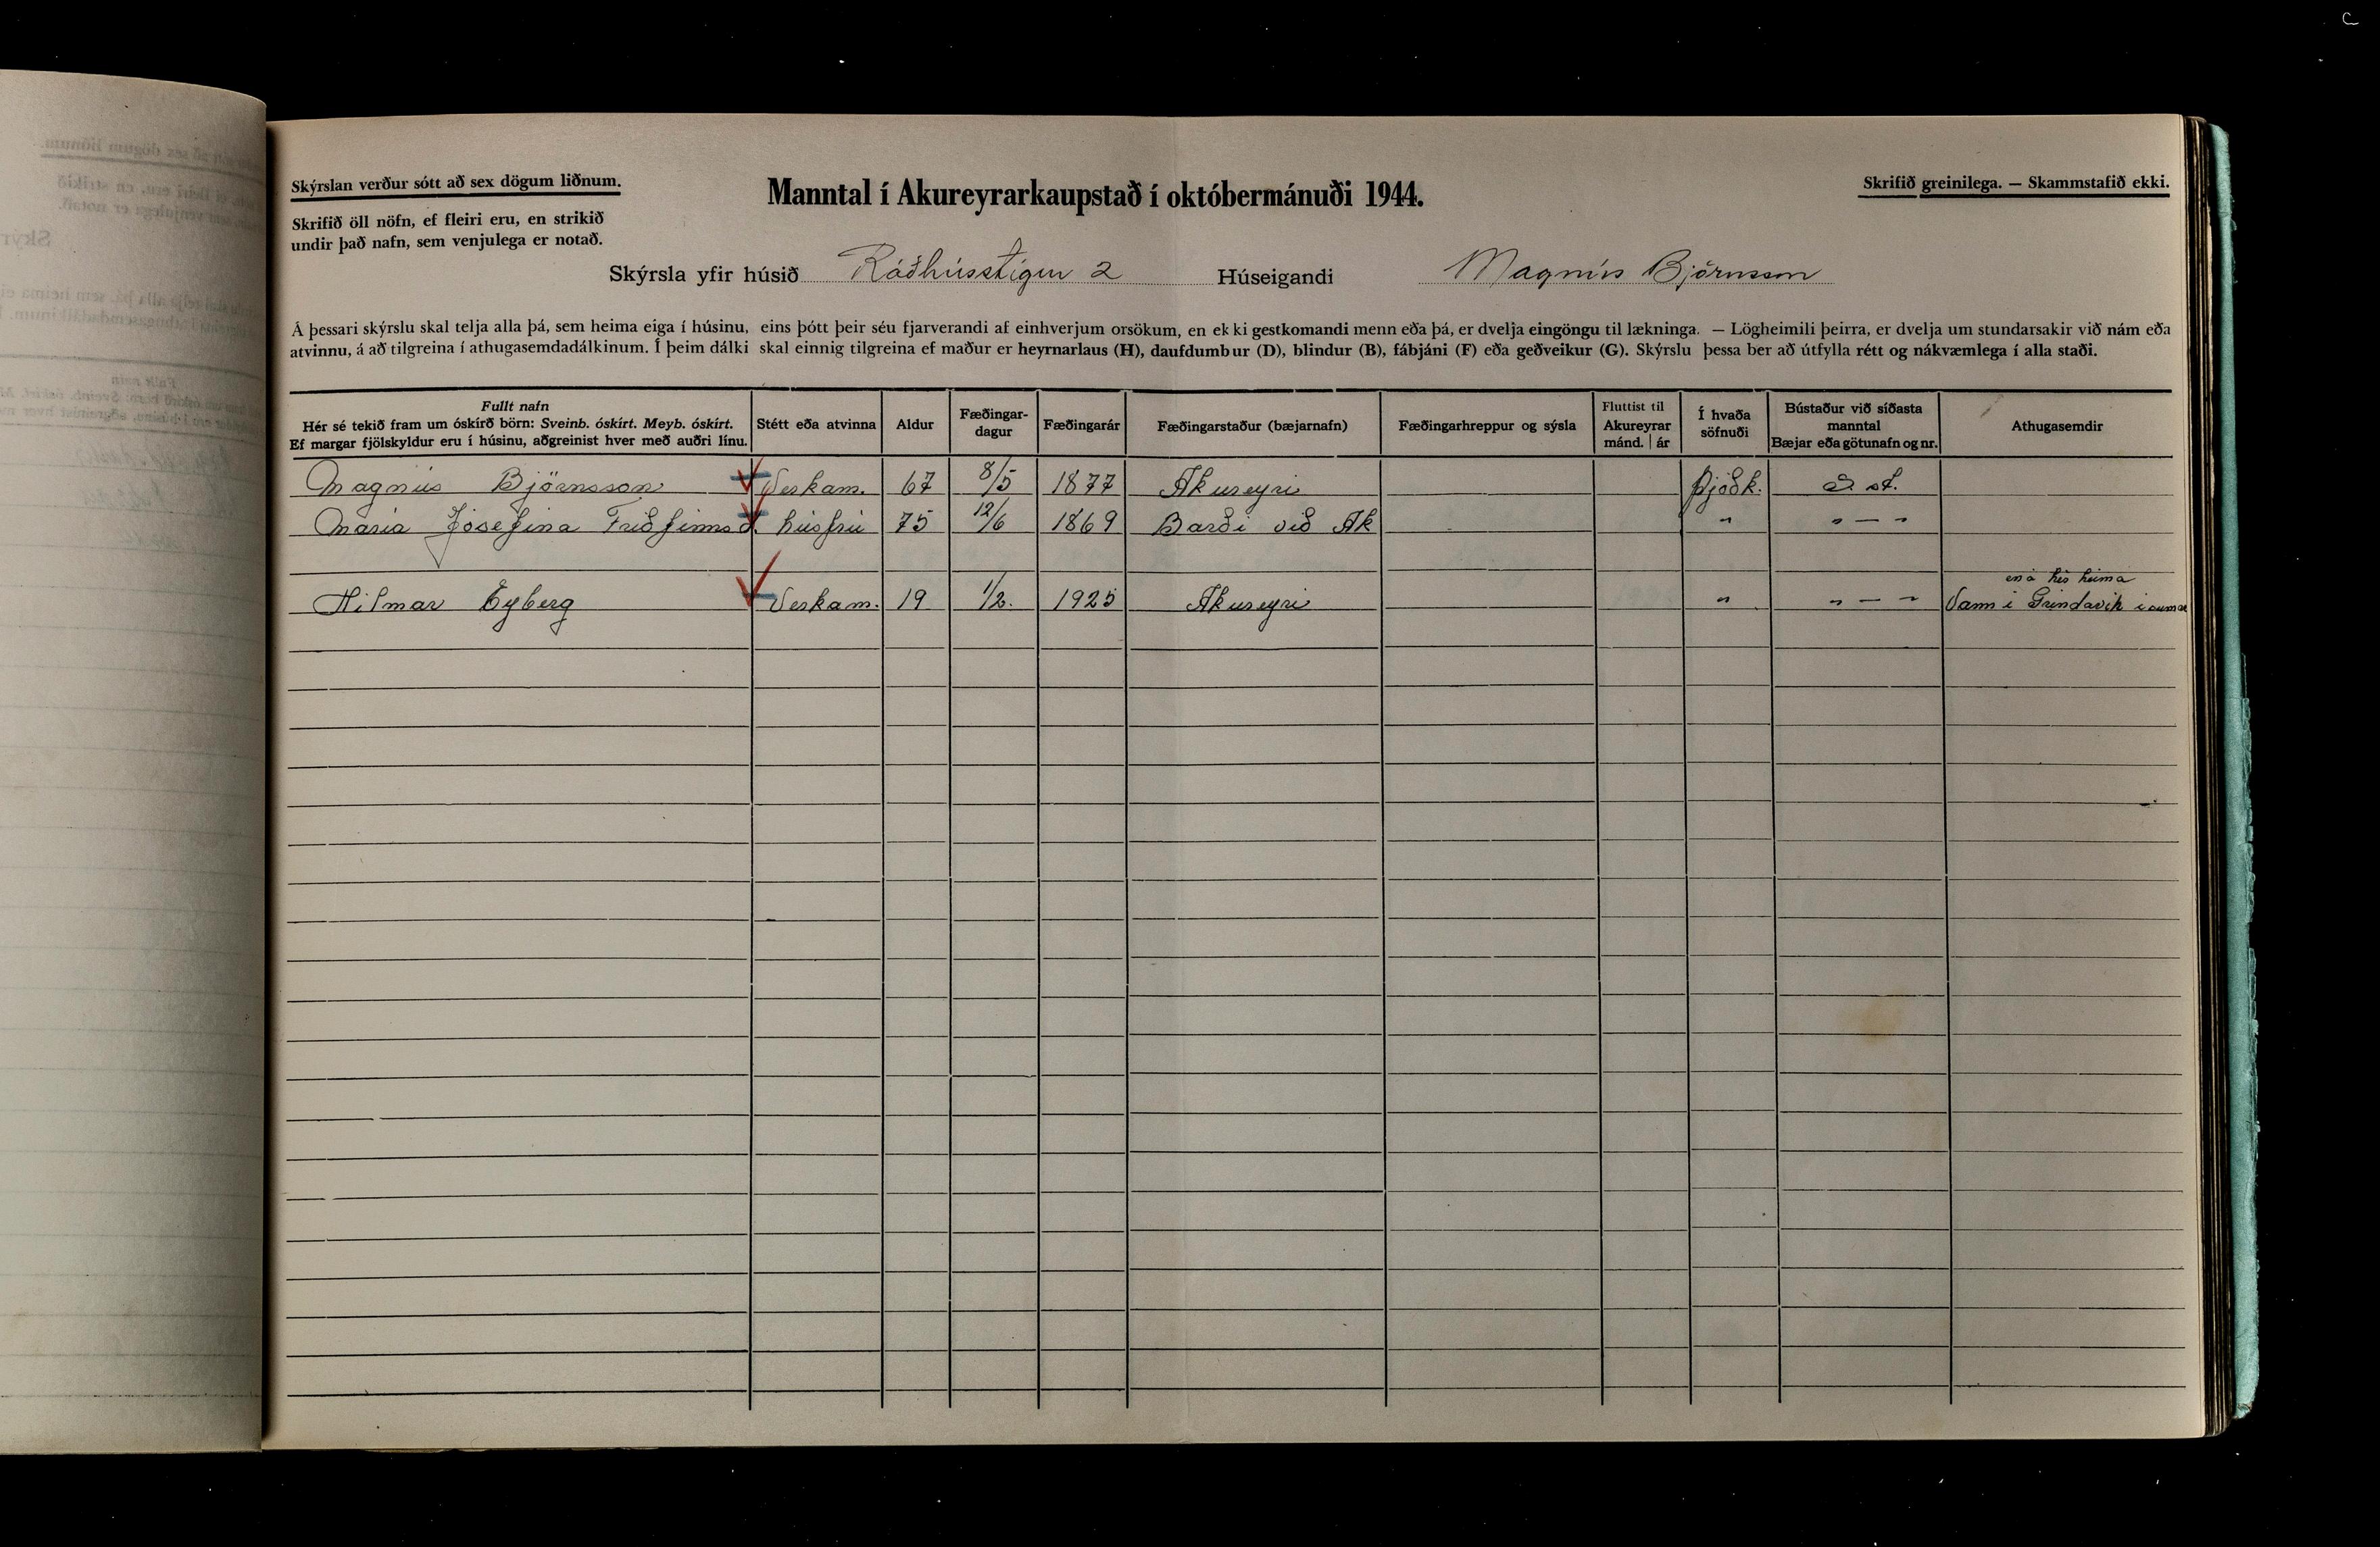 Skýrslan verður sótt að sex dögum liðnum.
Skrifið öll nöfn, ef fleiri eru, en strikið
undir það nafn, sem venjulega er notað.
Manntal í Akureyrarkaupstað í októbermánuði 1944.
Skrifið greinilega. — Skammstafið ekki.
Skýrsla yfir húsið Ráðhússtígur 2 Húseigandi Magnús Björnsson
Á þessari skýrslu skal telja alla þá, sem heima eiga í húsinu, eins þótt þeir séu fjarverandi af einhverjum orsökum, en ekki gestkomandi menn eða þá, er dvelja eingöngu til lækninga. — Lögheimili þeirra, er dvelja um stundarsakir við nám eða
atvinnu, á að tilgreina í athugasemdadálkinum. Í þeim dálki skal einnig tilgreina ef maður er heyrnarlaus (H), daufdumbur (D), blindur (B), fábjáni (F) eða geðveikur (G). Skýrslu þessa ber að útfylla rétt og nákvæmlega í alla staði.
Fullt nafn
Hér sé tekið fram um óskírð börn: Sveinb. óskírt. Meyb. óskírt.
Ef margar fjölskyldur eru í húsinu, aðgreinist hver með auðri línu.
Stétt eða atvinna
Aldur
Fæðingar-
dagur
Fæðingarár
Fæðingarstaður (bæjarnafn)
Fæðingarhreppur og sýsla
Fluttist til
Akureyrar
mánd. | ár
Í hvaða
söfnuði
Bústaður við síðasta
manntal
Bæjar eða götunafn og nr.
Athugasemdir
Magnús Björnsson Verkam. 67 8/5 1877 Akureyri Þjóðk. R. st.
María Jósefína Friðfinnsd. húsfrú 75 12/6 1869 Barði við Ak " " — "
Hilmar Eyberg Verkam. 19 1/2. 1925 Akureyri " " — " en á hér heima
Vann í Grindavík í sumar